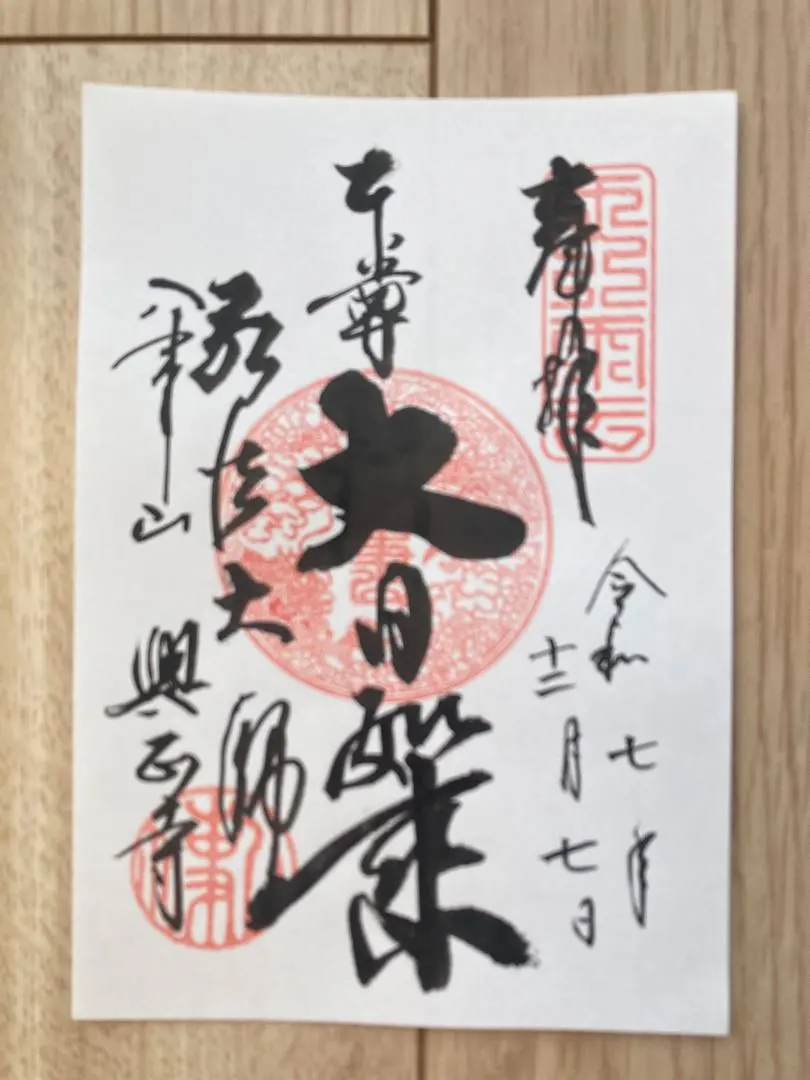 奉拝
令和七年
十二月七日
本尊
大日如来
弘法大師
八事山
興正寺